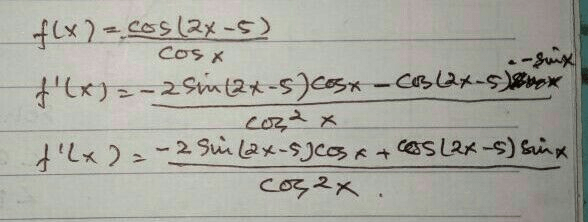 f(x) = cos(2x-5)
cos x
f'(x) = -2 sin(2x-5) cos x - cos(2x-5) . - sin x
cos² x
f'(x) = -2 sin(2x-5) cos x + cos(2x-5) sin x
cos² x .